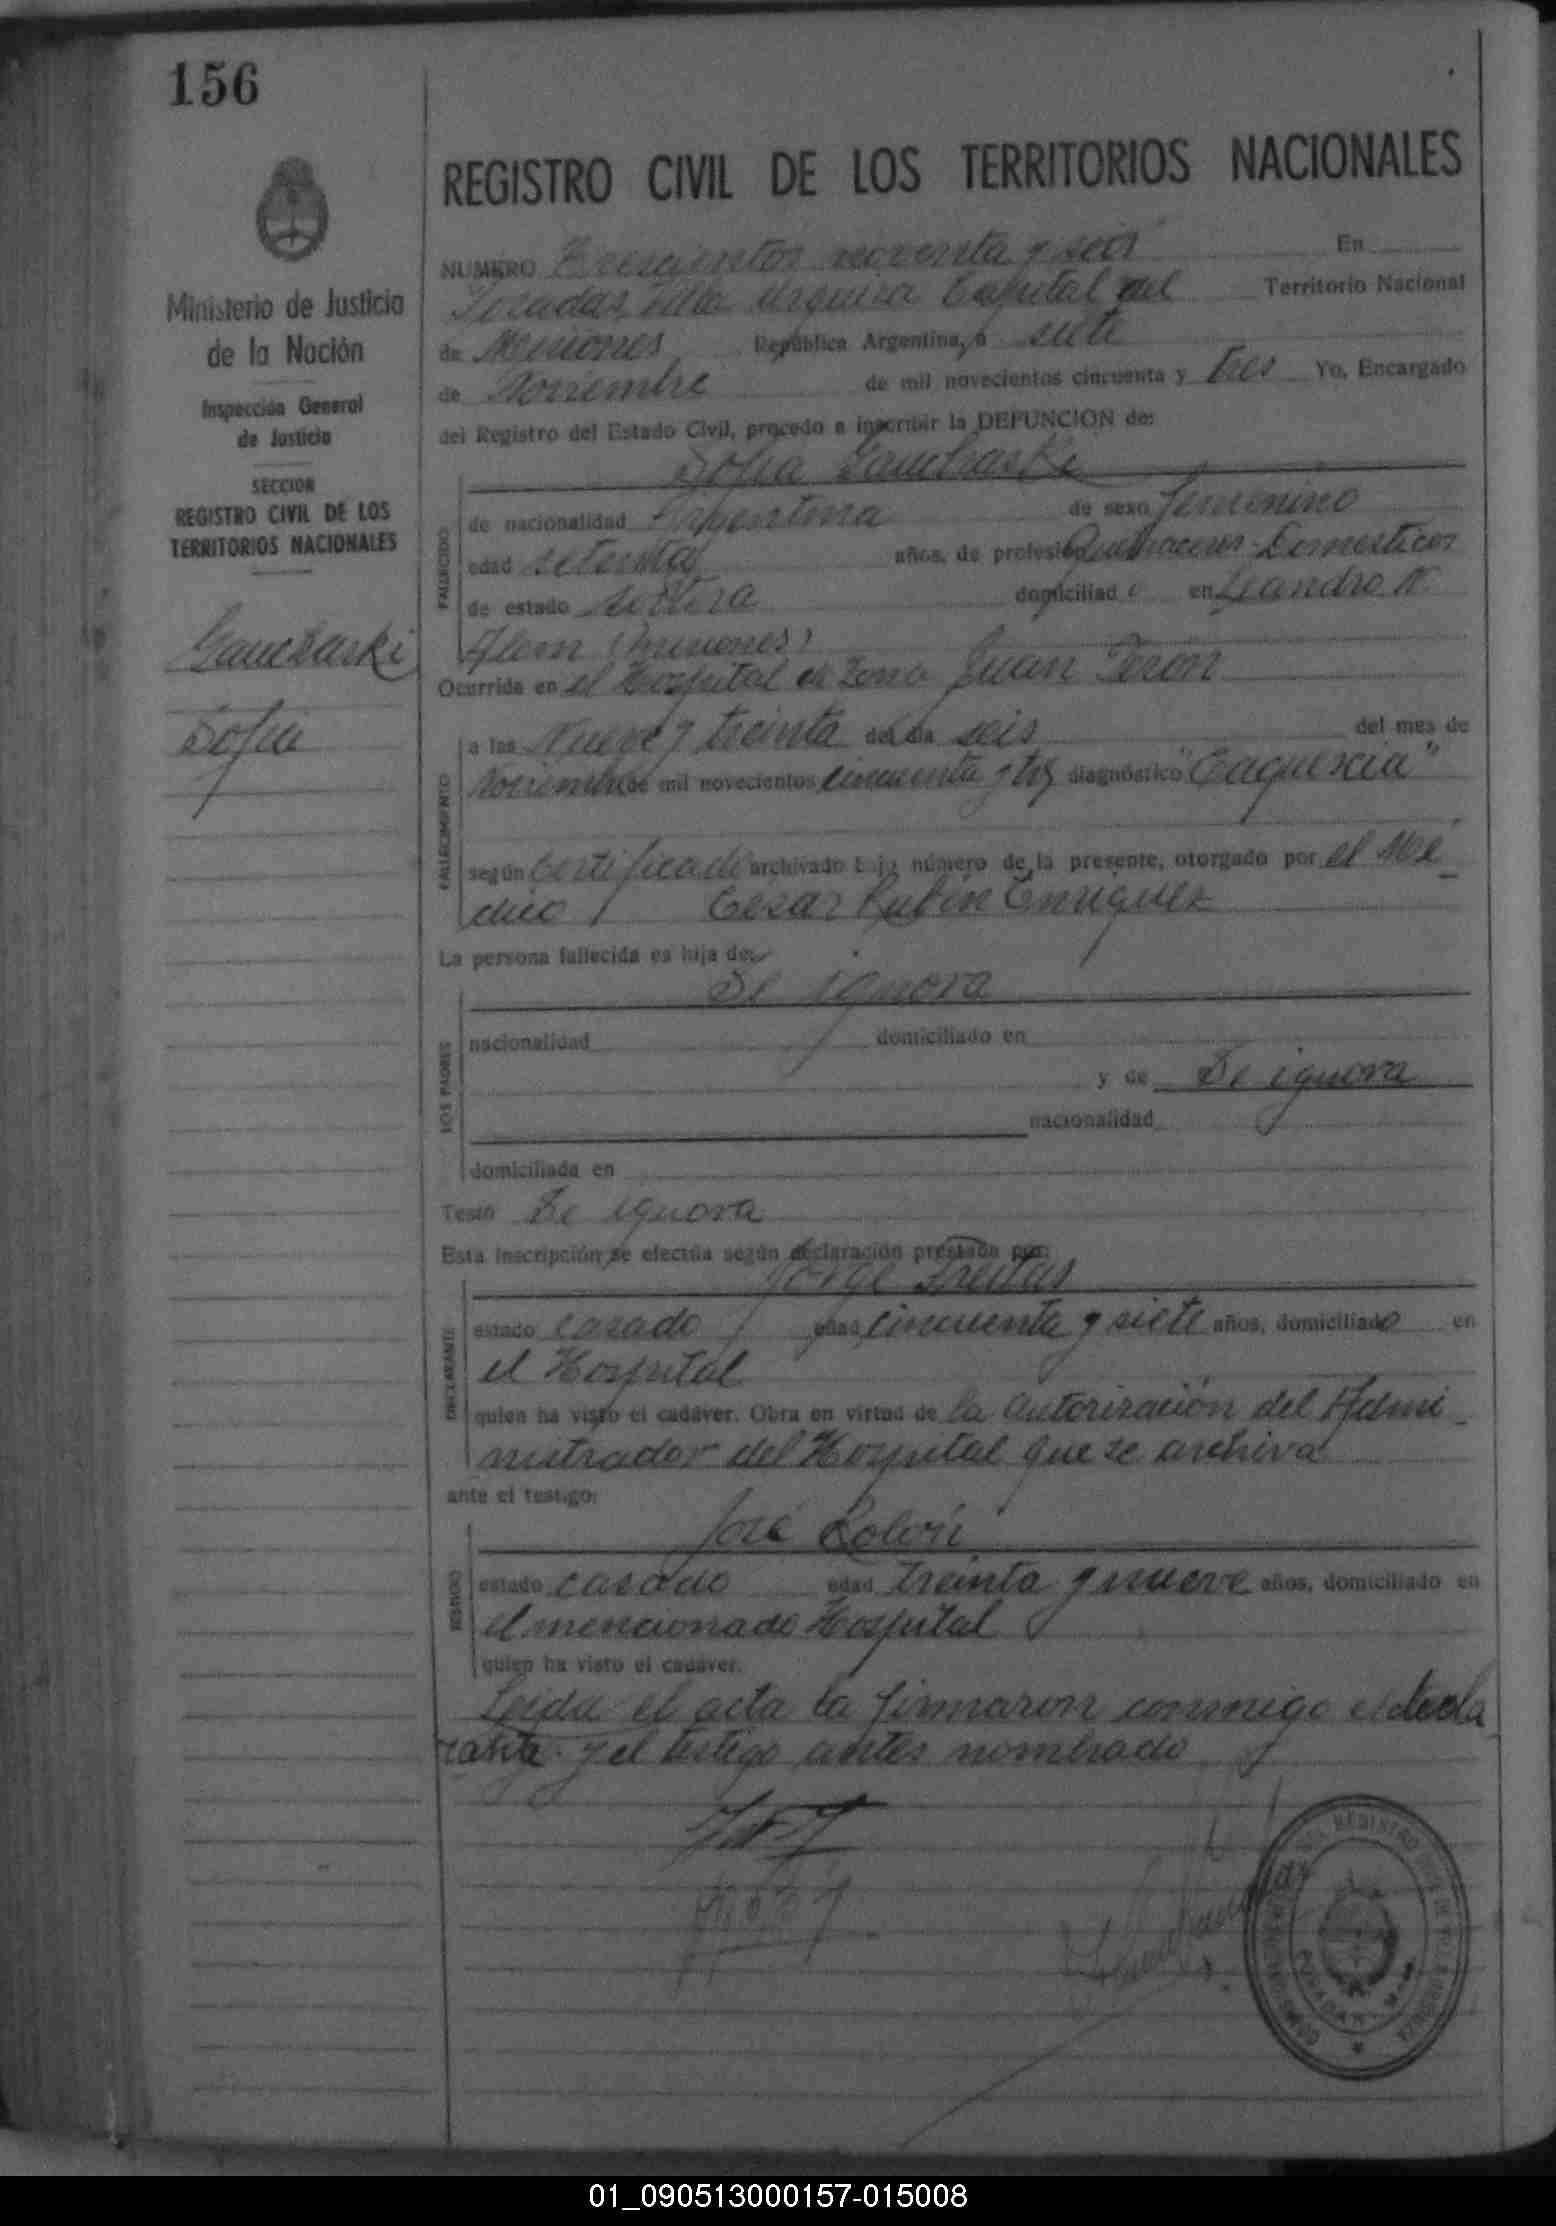 156
Ministerio de Justicia
de la Nación
Inspección General
de Justicia
SECCION
REGISTRO CIVIL DE LOS
TERRITORIOS NACIONALES
Sofia
REGISTRO CIVIL DE LOS TERRITORIOS NACIONALES
NUMERO Trescientos noventa y seis En
Posadas, Villa Urquiza Capital del Territorio Nacional
de Misiones República Argentina, a siete
de Noviembre de mil novecientos cincuenta y tres Yo, Encargado
del Registro del Estado Civil, procedo a inscribir la DEFUNCION de:
Sofia
FALLECIDO
de nacionalidad Argentina de sexo femenino
edad setenta años, de profesión Quehaceres Domesticos
de estado soltera domiciliad a en Leandro N.
Alem (Misiones)
Ocurrida en el Hospital de Zona Juan Perón
FALLECIMIENTO
a las Nueve y treinta del día seis del mes de
Noviembre de mil novecientos cincuenta y tres diagnóstico "Caquexia"
según Certificado archivado bajo número de la presente, otorgado por el Mé-
dico César Rubin Enriquez
La persona fallecida es hija de:
Se ignora
LOS PADRES
nacionalidad domiciliado en
y de Se ignora
nacionalidad
domiciliada en
Testó Se ignora
Esta inscripción se efectúa según declaración prestada por:
Jorge Freitas
DECLARANTE
estado casado edad cincuenta y siete años, domiciliado en
el Hospital
quien ha visto el cadáver. Obra en virtud de la autorización del Admi-
nistrador del Hospital que se archiva
ante el testigo:
José Rolón
TESTIGO
estado casado edad treinta y nueve años, domiciliado en
el mencionado Hospital
quien ha visto el cadáver.
Leída el acta la firmaron conmigo el decla
rante y el testigo antes nombrado
01_090513000157-015008